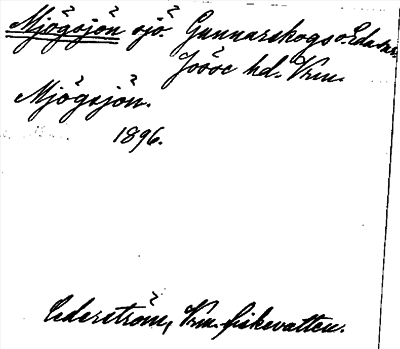 Mjögsjön sjö. Gunnarskogs o. Eda snr.
Jösse hd. Vrm.
Mjögsjön.
1896.
Cederström, Vrm. fiskevatten.